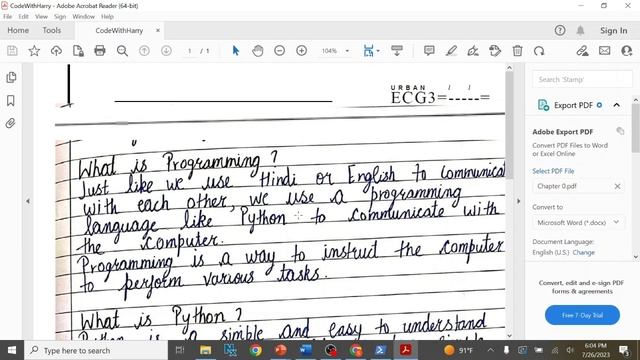 CodeWithHarry - Adobe Acrobat Reader (64-bit)
File Edit View Sign Window Help
Home Tools CodeWithHarry × Sign In
1 / 1 104%
URBAN 1 1
ECG3=-----=
What is Programming?
Just like we use Hindi or English to communicat
with each other, we use a programming
language like Python to communicate with
the computer.
Programming is a way to instruct the computer
to perform various tasks.
What is Python?
Python is a simple and easy to understand
Search 'Stamp'
Export PDF
Adobe Export PDF
Convert PDF Files to Word
or Excel Online
Select PDF File
Chapter 0.pdf ×
Convert to
Microsoft Word (*.docx)
Document Language:
English (U.S.) Change
Convert, edit and e-sign PDF
forms & agreements
Free 7-Day Trial
91°F
6:04 PM
7/26/2023